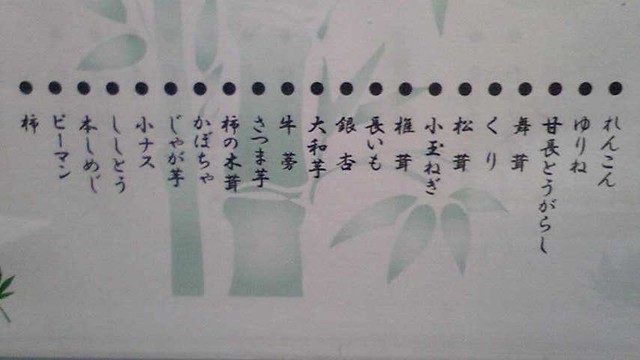 ● れんこん
● ゆりね
● 甘長とうがらし
● 舞茸
● くり
● 松茸
● 小玉ねぎ
● 椎茸
● 長いも
● 銀杏
● 大和芋
● 牛蒡
● さつま芋
● 柿の木茸
● かぼちゃ
● じゃが芋
● 小ナス
● ししとう
● 本しめじ
● ピーマン
● 柿